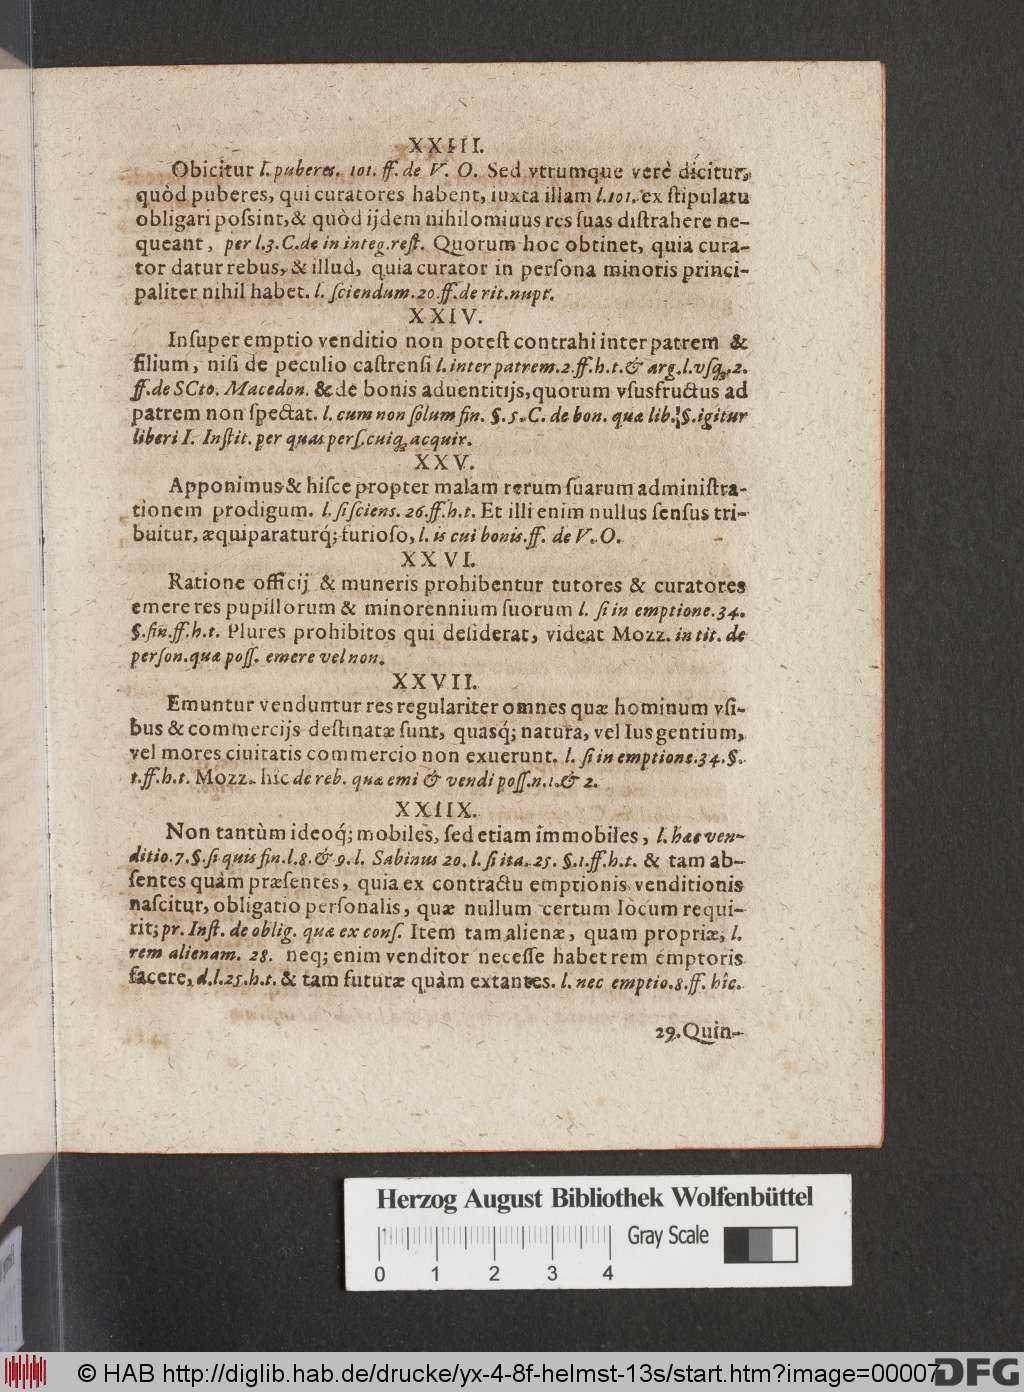 XXIII.
Obicitur l. puberes. 101. ff. de V. O. Sed vtrumque verè dicitur,
quòd puberes, qui curatores habent, iuxta illam l.101. ex ſtipulatu
obligari poſsint, & quòd ijdem nihilomiuus res ſuas diſtrahere ne-
queant, per l.3. C. de in integ. reſt. Quorum hoc obtinet, quia cura-
tor datur rebus, & illud, quia curator in perſona minoris princi-
paliter nihil habet. l. ſciendum. 20. ff. de rit. nupt.
XXIV.
Inſuper emptio venditio non poteſt contrahi inter patrem &
filium, niſi de peculio caſtrenſi l. inter patrem. 2. ff. h. t. & arg. l. vſq;. 2.
ff. de SCto. Macedon. & de bonis aduentitijs, quorum vſusfructus ad
patrem non ſpectat. l. cum non ſolum fin. §. 5. C. de bon. quæ lib. §. igitur
liberi I. Inſtit. per quas perſ. cuiq; acquir.
XXV.
Apponimus & hiſce propter malam rerum ſuarum adminiſtra-
tionem prodigum. l. ſi ſciens. 26. ff. h. t. Et illi enim nullus ſenſus tri-
buitur, æquiparaturq́; furioſo, l. is cui bonis. ff. de V. O.
XXVI.
Ratione officij & muneris prohibentur tutores & curatores
emere res pupillorum & minorennium ſuorum l. ſi in emptione. 34.
§. fin. ff. h. t. Plures prohibitos qui deſiderat, videat Mozz. in tit. de
perſon. quæ poſſ. emere vel non.
XXVII.
Emuntur venduntur res regulariter omnes quæ hominum vſi-
bus & commercijs deſtinatæ ſunt, quasq́; natura, vel Ius gentium,
vel mores ciuitatis commercio non exuerunt. l. ſi in emptione. 34. §.
t. ff. h. t. Mozz. hîc de reb. quæ emi & vendi poſſ. n. 1. & 2.
XXIIX.
Non tantùm ideoq́; mobiles, ſed etiam immobiles, l. hæc ven-
ditio. 7. §. ſi quis fin. l. 8. & 9. l. Sabinus 20. l. ſi ita. 25. §. 1. ff. h. t. & tam ab-
ſentes quàm præſentes, quia ex contractu emptionis venditionis
naſcitur, obligatio perſonalis, quæ nullum certum locum requi-
rit; pr. Inſt. de oblig. quæ ex conſ. Item tam alienæ, quam propriæ, l.
rem alienam. 28. neq; enim venditor neceſſe habet rem emptoris
facere, d. l. 25. h. t. & tam futuræ quàm extantes. l. nec emptio. 8. ff. hîc.
29. Quin-
Herzog August Bibliothek Wolfenbüttel
Gray Scale
0 1 2 3 4
© HAB http://diglib.hab.de/drucke/yx-4-8f-helmst-13s/start.htm?image=00007
DFG